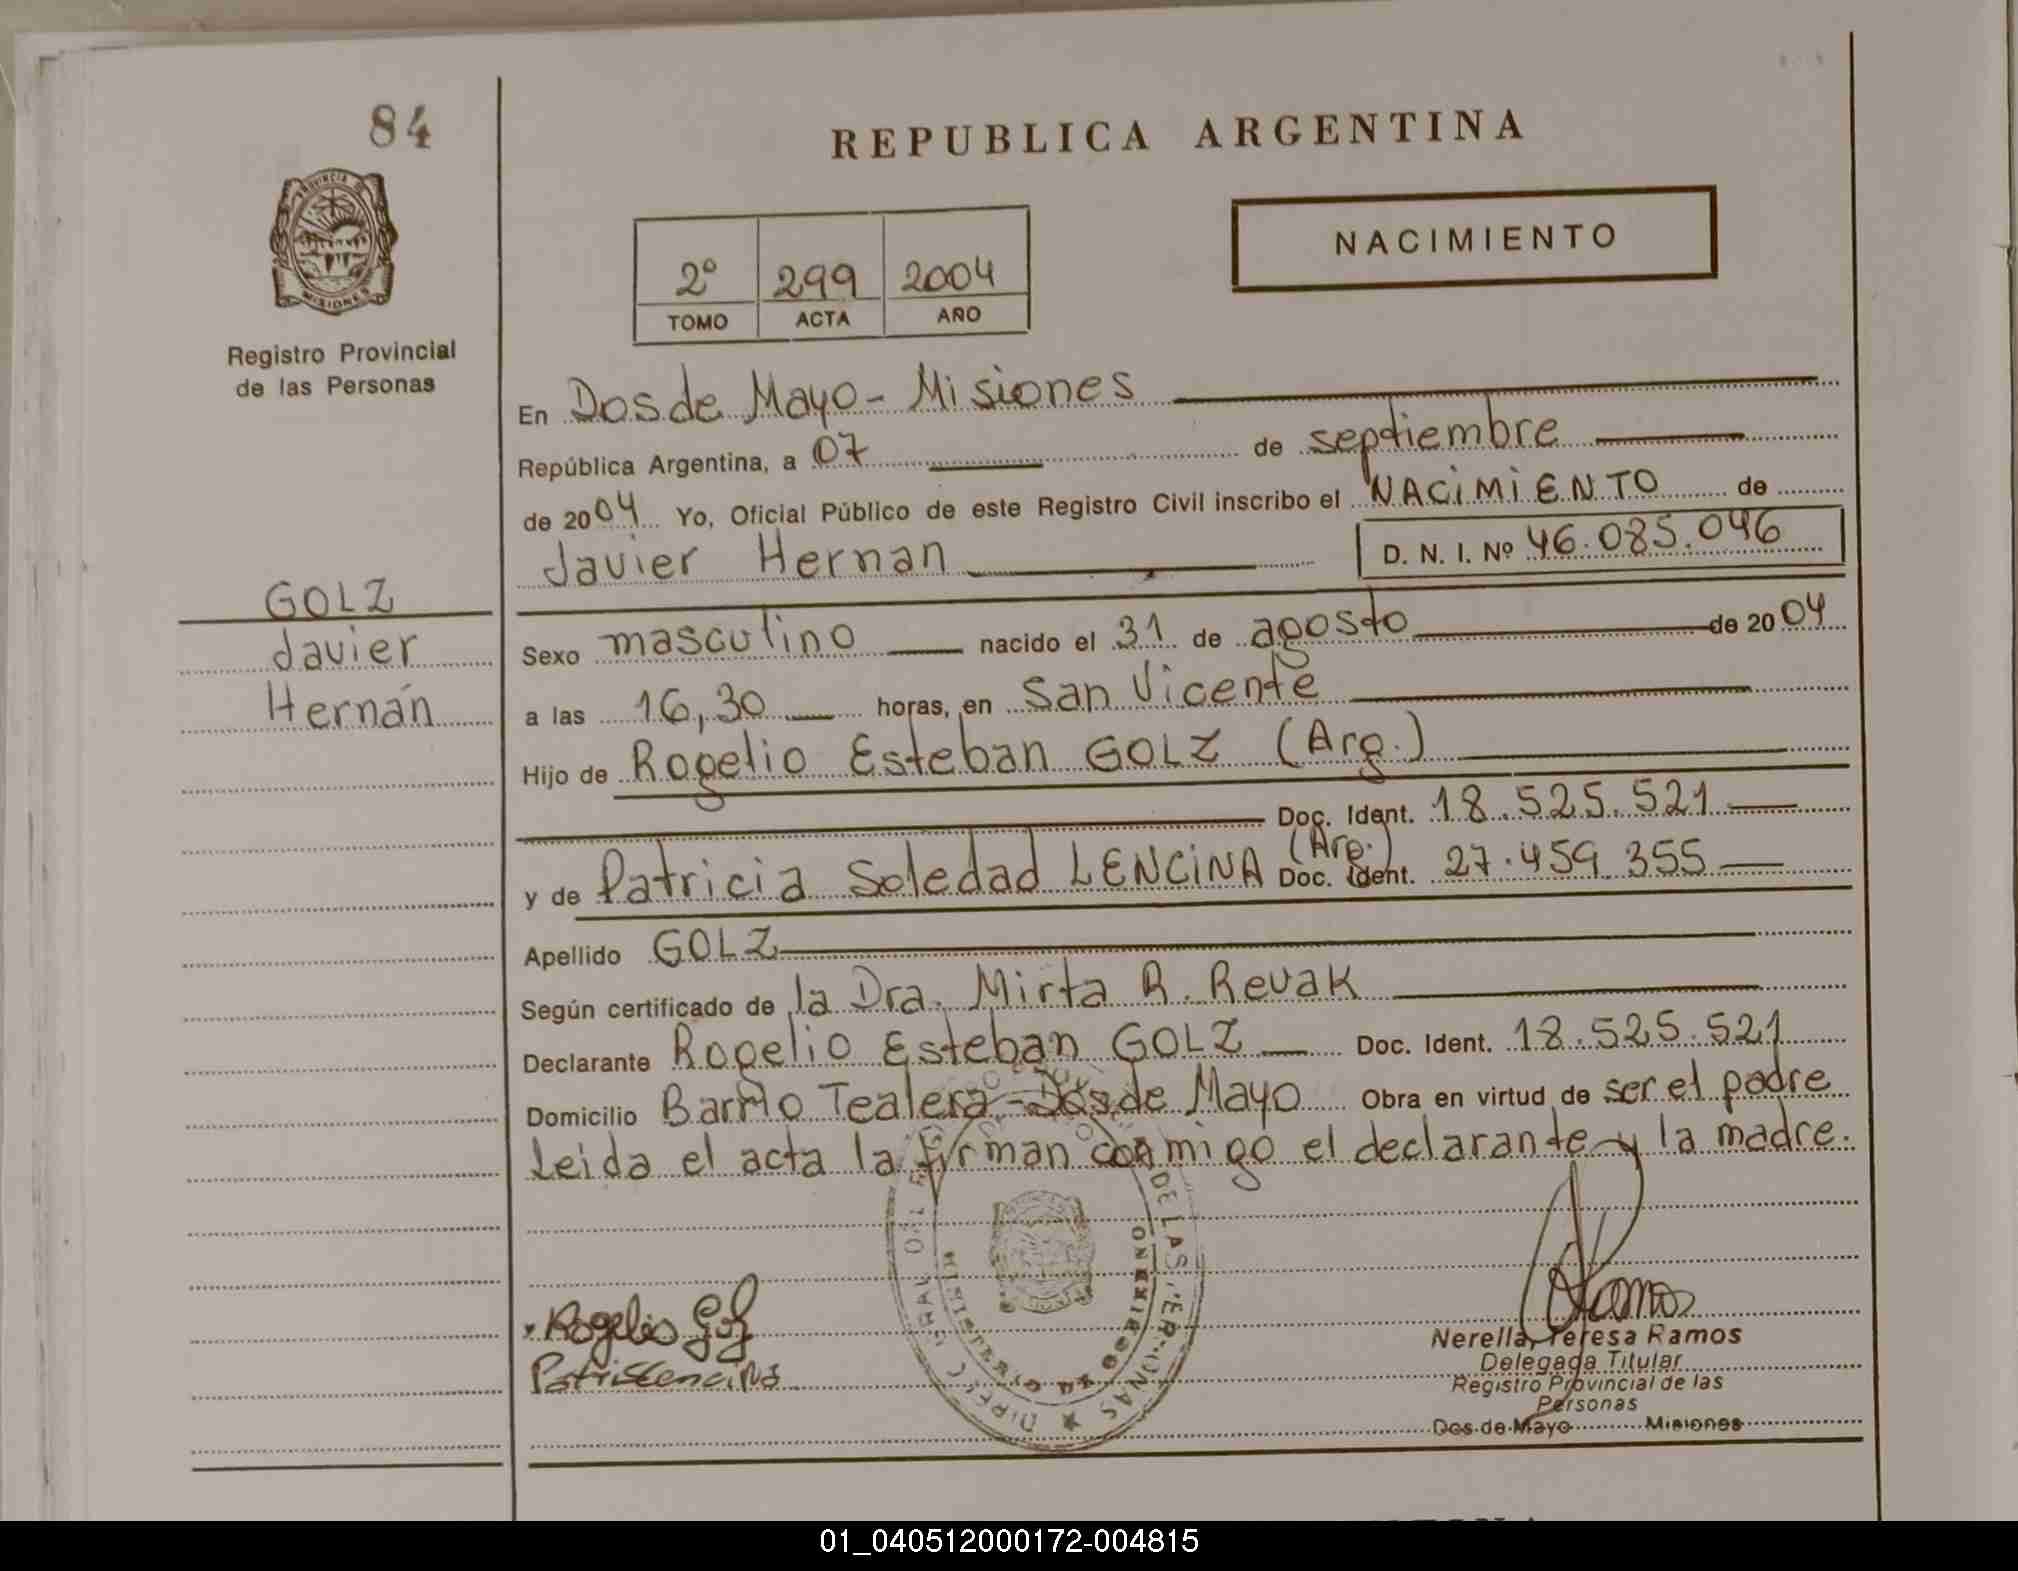 84
REPUBLICA ARGENTINA
PROVINCIA DE
MISIONES
NACIMIENTO
2º 299 2004
TOMO ACTA AÑO
Registro Provincial
de las Personas
En Dos de Mayo - Misiones
República Argentina, a 07 de septiembre
de 2004 Yo, Oficial Público de este Registro Civil inscribo el NACIMIENTO de
Javier Hernan D. N. I. Nº 46.085.046
GOLZ
Javier
Hernán
Sexo masculino nacido el 31 de agosto de 2004
a las 16,30 horas, en San Vicente
Hijo de Rogelio Esteban GOLZ (Arg.)
Doc. Ident. 18.525.521
y de Patricia Soledad LENCINA (Arg.) Doc. Ident. 27.459.355
Apellido GOLZ
Según certificado de la Dra. Mirta R. Revak
Declarante Rogelio Esteban GOLZ Doc. Ident. 18.525.521
Domicilio Barrio Tealera - Dos de Mayo Obra en virtud de ser el padre
Leida el acta la firman conmigo el declarante y la madre.
DE LAS PERSONAS
MINISTERIO DE GOBIERNO
Rogelio Golz
Ramos
Nerella Teresa Ramos
Delegada Titular
Registro Provincial de las
Personas
Dos de Mayo Misiones
01_040512000172-004815